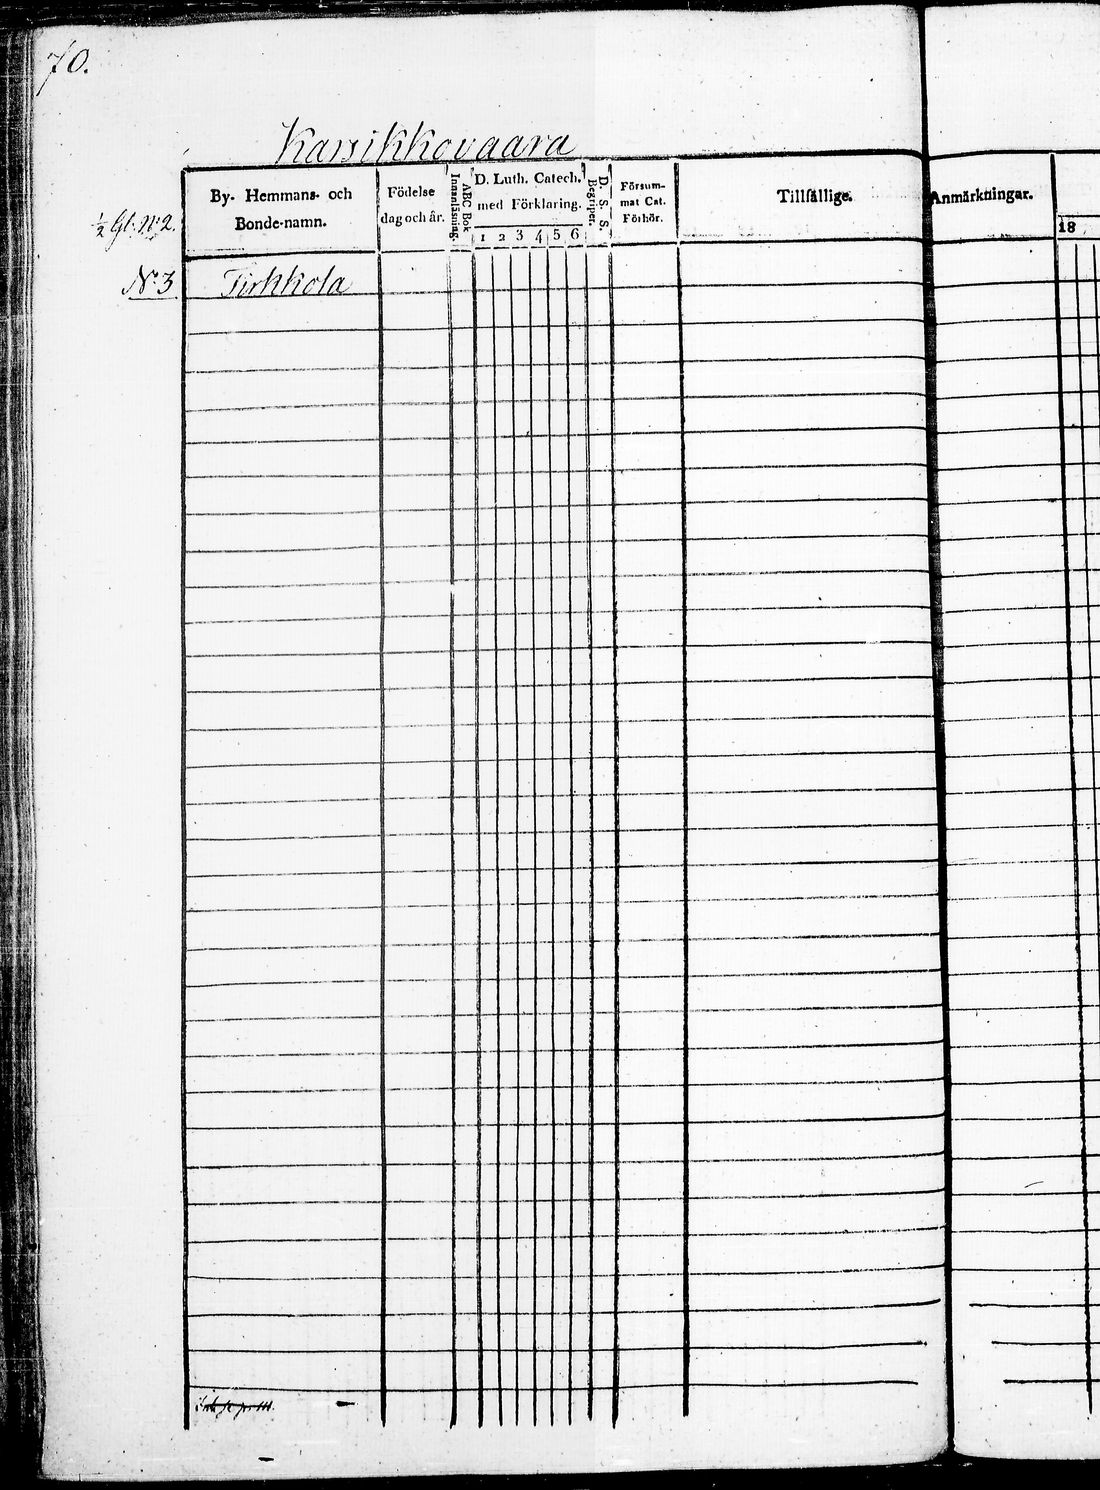 70.
Karsikkovaara
By- Hemmans- och
Bonde-namn.
Födelse
dag och år.
ABC Bok
Innanläsning.
D. Luth. Catech.
med Förklaring.
1 2 3 4 5 6
D. S. S.
Begriper.
Försum-
mat Cat.
Förhör.
Tillfällige.
Anmärkningar.
18
½ Gl: N:2.
N:3 Tirkkola